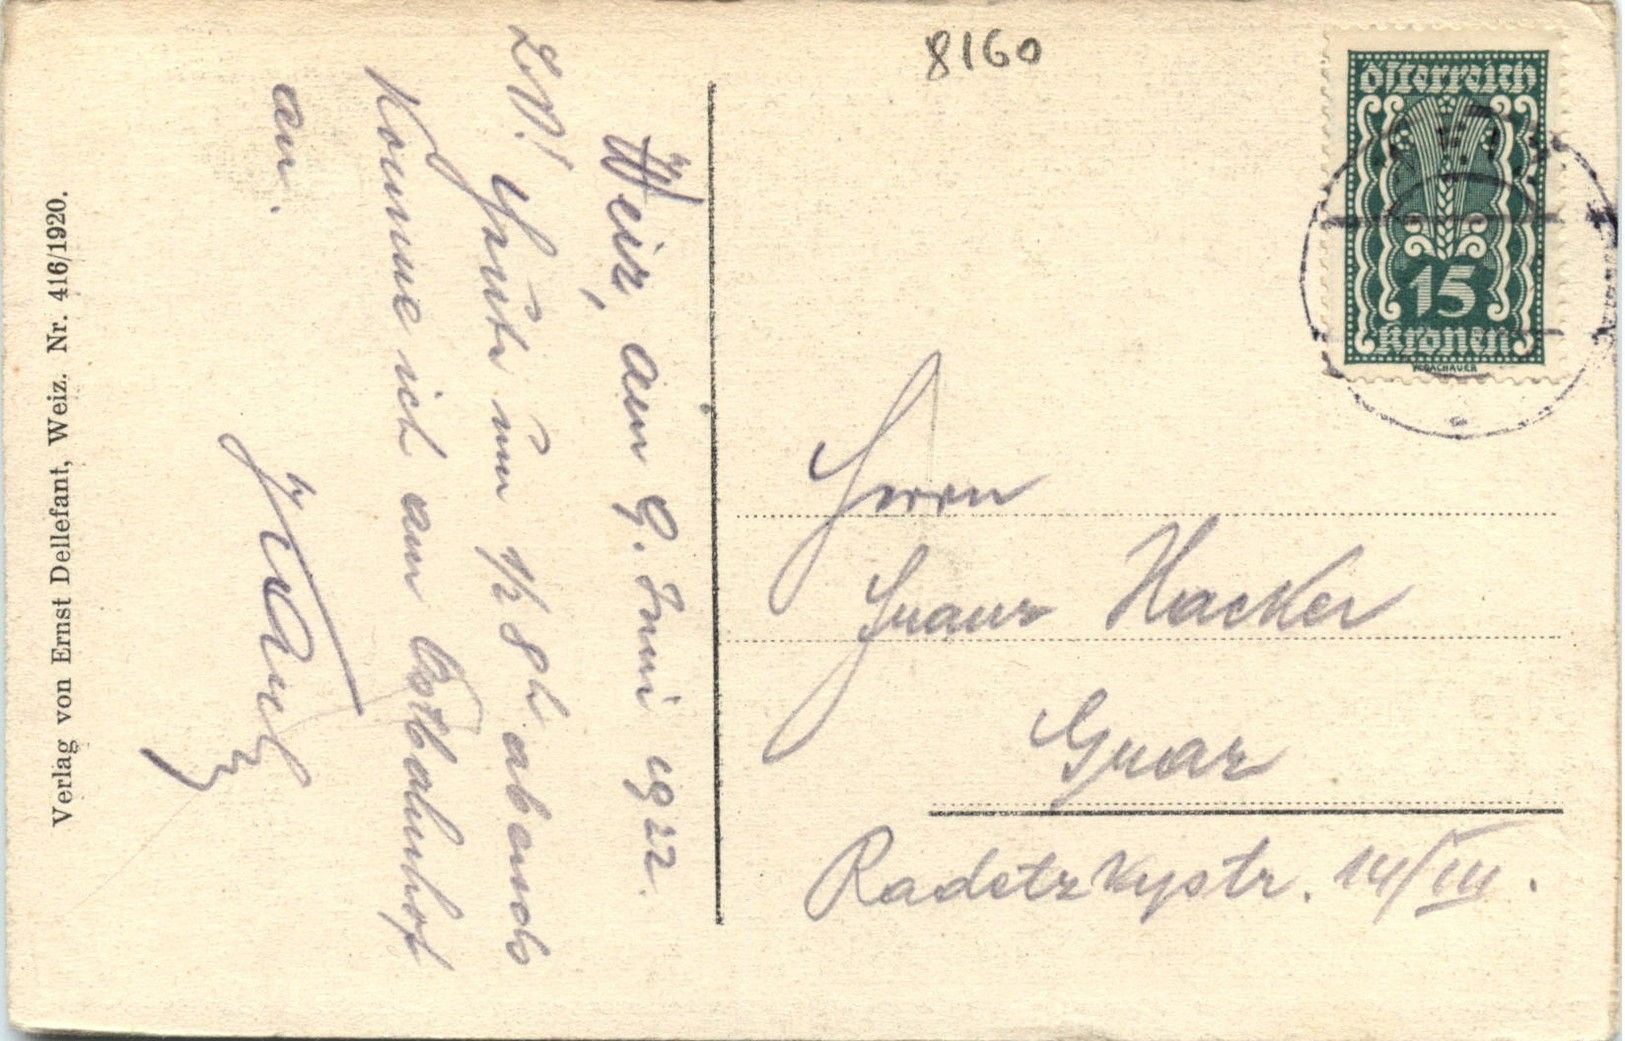 8160
Österreich
15
Kronen
Weiz, am 9. Juni 1922.
L.V.! Heute um ½ 8h abends
komme ich am Ostbahnhof
an.
Herrn
Franz Hacker
Graz
Radetzkystr. 14/III.
Verlag von Ernst Dellefant, Weiz. Nr. 416/1920.